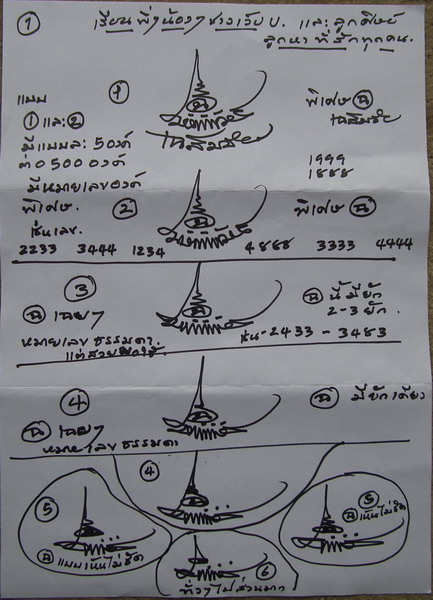 ① เรียน พี่ๆน้องๆ ชาวเว็บ บ. และ ลูกศิษย์
ลูกหา ที่รักทุกคน.
แบบ ① พิเศษ ฉ
① และ ② เฉลิมชัย เฉลิมชัย
มีแบบละ 5 องค์
ต่อ 500 องค์ 1999
1888
มีหมายเลของค์
พิเศษ. ② พิเศษ ฉ
เช่นเลข.
2233 3444 1234 4888 3333 4444
③ ฉ นี้ มียัก
ฉ เฉยๆ 2-3 ยัก.
หมายเลขธรรมดา. เช่น-2433 - 3483
แต่สวย
④ ฉ มียักเดียว
ฉ เฉยๆ
หมายเลขธรรมดา
④
⑤ ⑤
ฉ เห็นไม่ชัด
ฉ แบบเห็นไม่ชัด
⑥
ทั่วๆไปส่วนมาก